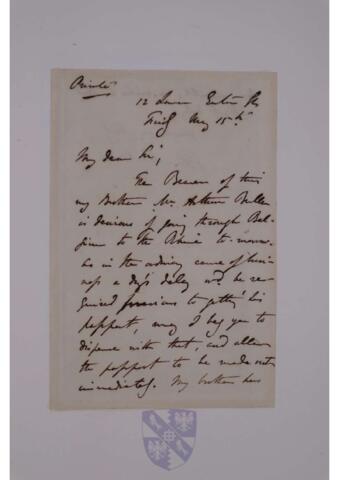 Private
12 Lower Eaton Str
Friday May 15th
My dear Sir,
The Bearer of this
my Brother Mr. Arthur Buller
is desirous of going through Bel-
gium to the Rhine to-morrow.
As in the ordinary course of busi-
ness a day's delay wd. be re-
quired previous to gettg his
passport, may I beg you to
dispense with that, and allow
the passport to be made out
immediately. My brother has